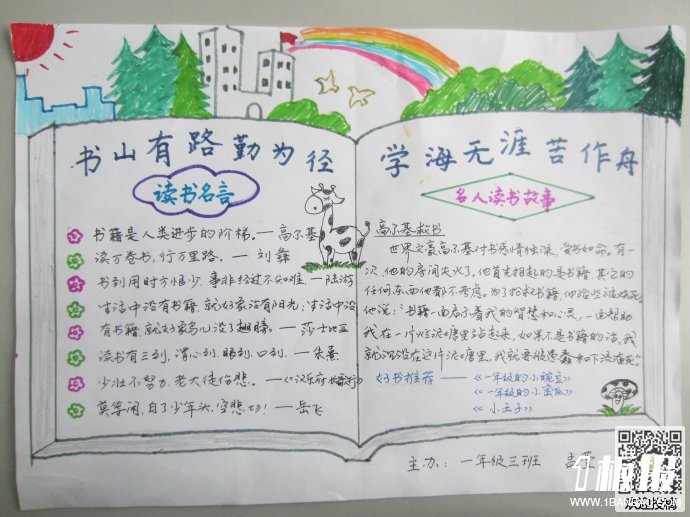 书山有路勤为径
学海无涯苦作舟
读书名言
书籍是人类进步的阶梯。—高尔基
读万卷书,行万里路。—刘彝
书到用时方恨少,事非经过不知难。—陆游
生活中没有书籍,就好象没有阳光;生活中没
有书籍,就好象鸟儿没了翅膀。—莎士比亚
读书有三到,谓心到,眼到,口到。—朱熹
少壮不努力,老大徒伤悲。—《汉乐府·长歌行》
莫等闲,白了少年头,空悲切!—岳飞
名人读书故事
高尔基救书
世界文豪高尔基对书感情独深,爱书如命。有一
次,他的房间失火了,他首先抱起的是书籍,其它的
任何东西他都不考虑。为了抢救书籍,他险些被烧死。
他说:"书籍一面启示着我的智慧和心灵,一面帮助
我在一片烂泥塘里站起来,如果不是书籍的话,我
就沉没在这片泥塘里,我就要被愚蠢和下流淹死。"
好书推荐——《一年级的小豌豆》
《一年级的小蜜瓜》
《小王子》
主办:一年级三班 孟
板报
WWW.1BANBAO.COM
欢迎投稿